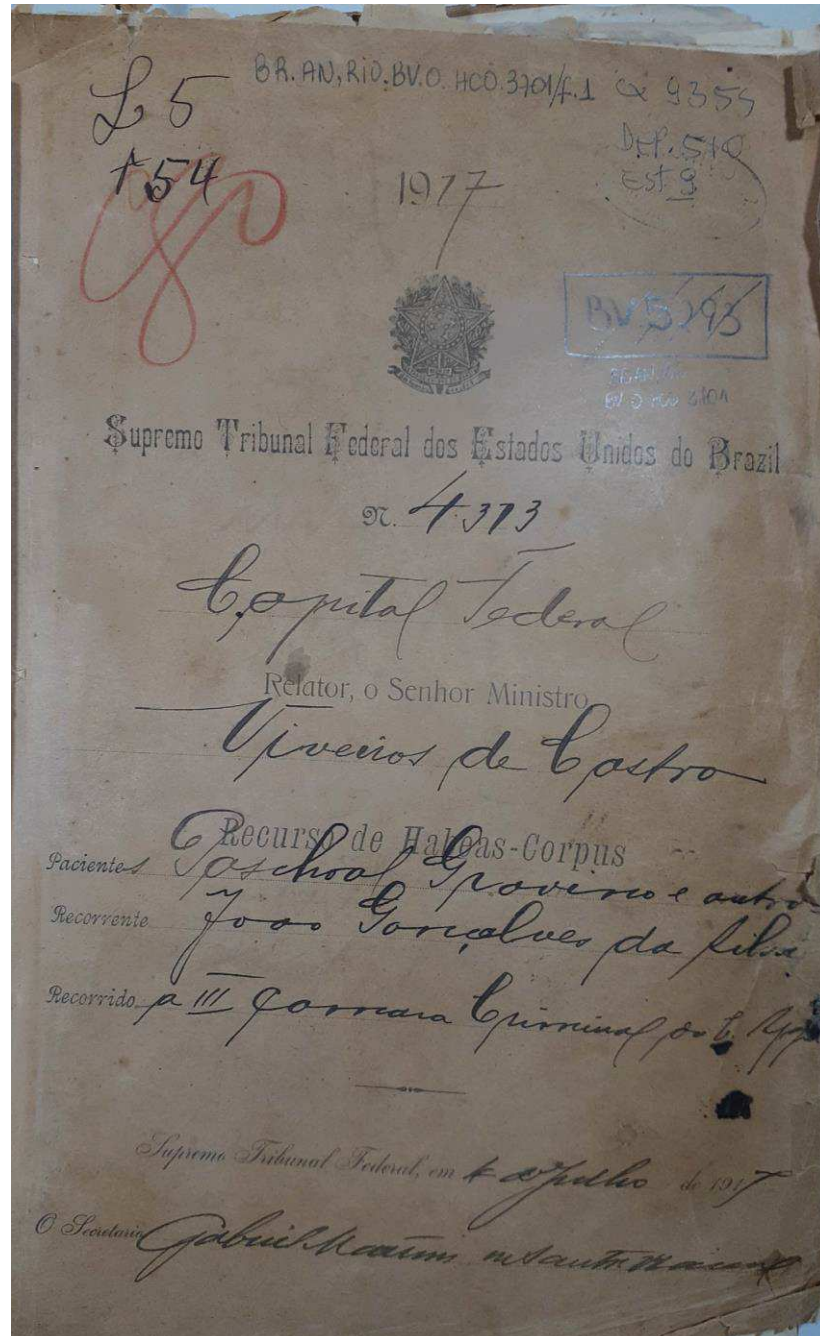 BR.AN,RIO.BV.O.HCO.3701/f.1 CX 9355
L 5
+ 54
Dep. 510
Est 9
1917
BV.5293
BV.O HCO 3701
Supremo Tribunal Federal dos Estados Unidos do Brazil
N. 4313
Capital Federal
Relator, o Senhor Ministro
Viveiros de Castro
Recurso de Habeas-Corpus
Pacientes Paschoal Gravino e outro
Recorrente João Gonçalves da Silva
Recorrido a III Camara Criminal da C. App
Supremo Tribunal Federal, em 4 de Julho de 1917
O Secretario Gabriel Martins dos Santos Vianna